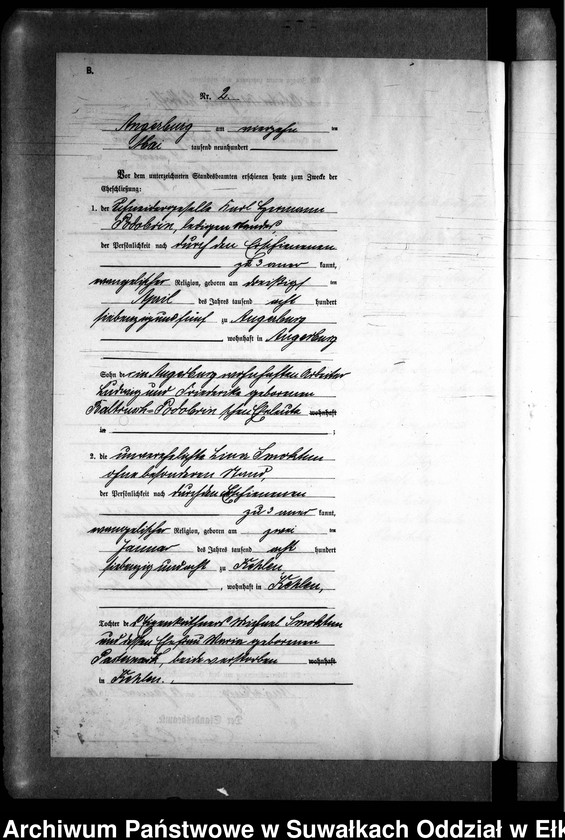 B.
Nr. 2.
Angerburg am vierzehn ten
Mai tausend neunhundert
Vor dem unterzeichneten Standesbeamten erschienen heute zum Zwecke der
Eheschließung:
1. der Schneidergeselle Karl Hermann
ledigen Standes,
der Persönlichkeit nach durch den Erschienenen
zu 3 kannt,
evangelischer Religion, geboren am dreißigsten
April des Jahres tausend acht hundert
siebenzig und fünf zu Angerburg
, wohnhaft in Angerburg
Sohn des in Angerburg wohnhaften Arbeiter
Ludwig und Friederike geborenen
schen Eheleute wohnhaft
in ;
2. die unverehelichte Lina
ohne besonderen Stand,
der Persönlichkeit nach durch den Erschienenen
zu 3 kannt,
evangelischer Religion, geboren am zwei ten
Januar des Jahres tausend acht hundert
siebenzig und acht zu Kehlen
, wohnhaft in Kehlen,
Tochter des Eigenkäthners Michael
und dessen Ehefrau Maria geborenen
Pasternack, beide verstorben wohnhaft
in Kehlen.
Archiwum Państwowe w Suwałkach Oddział w Ełk